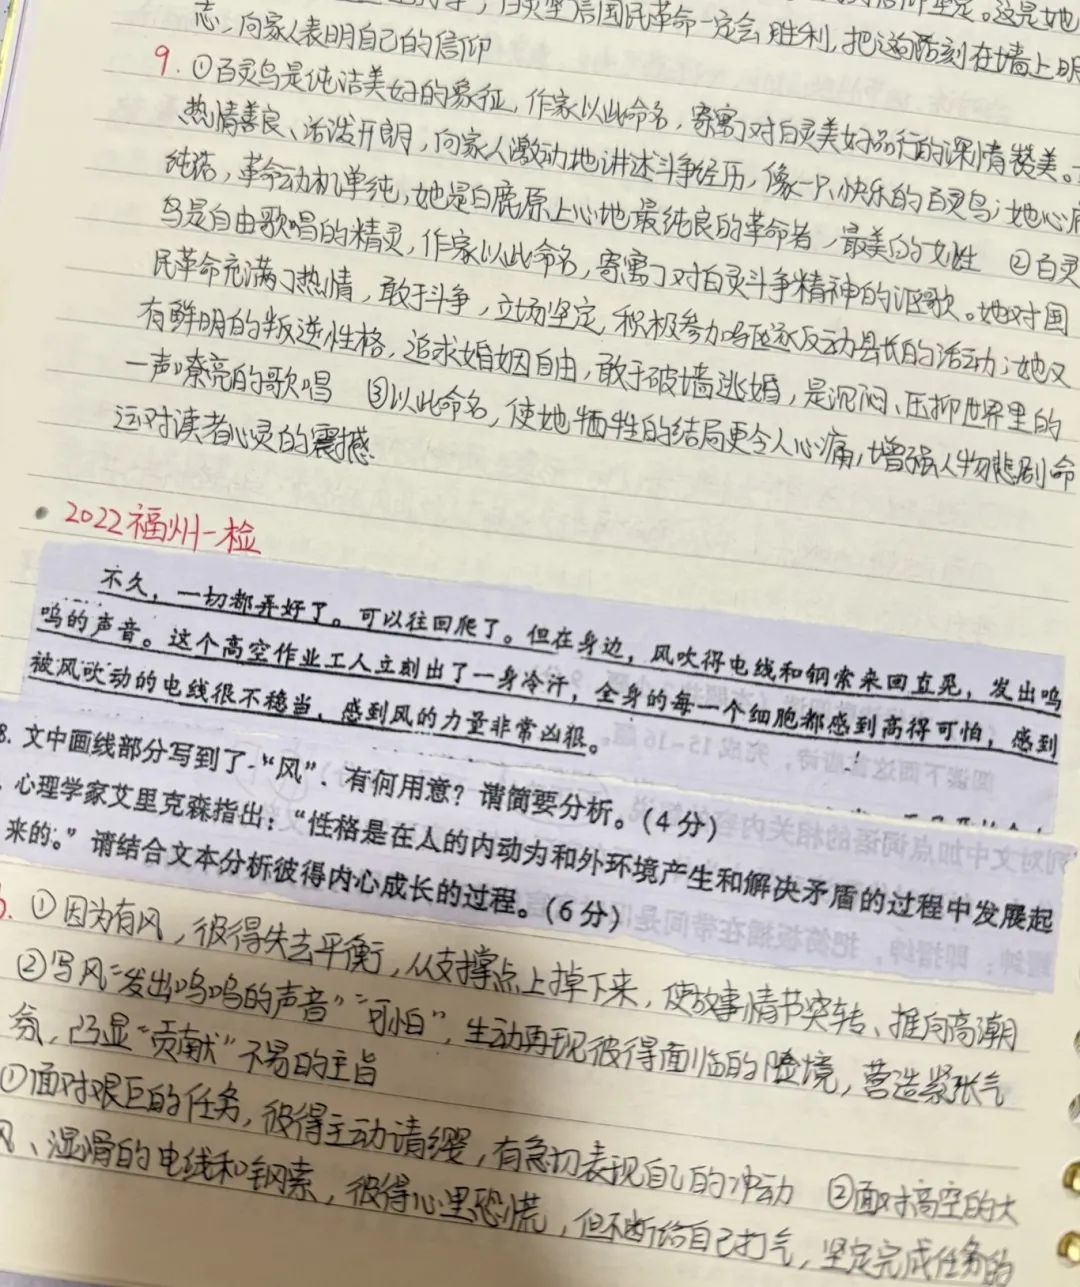 志,向家人表明自己的信仰
白灵坚信国民革命一定会胜利,把这句话刻在墙上明
9. ①百灵鸟是纯洁美好的象征,作家以此命名,寄寓了对白灵美好品行的深情赞美。
热情善良、活泼开朗,向家人激动地讲述斗争经历,像一只快乐的百灵鸟;她心
纯洁,革命动机单纯,她是白鹿原上心地最纯良的革命者,最美的女性 ②百灵
鸟是自由歌唱的精灵,作家以此命名,寄寓了对白灵斗争精神的讴歌。她对国
民革命充满了热情,敢于斗争,立场坚定,积极参加驱逐反动县长的活动;她又
有鲜明的叛逆性格,追求婚姻自由,敢于破墙逃婚,是沉闷、压抑世界里的
一声嘹亮的歌唱 ③以此命名,使她牺牲的结局更令人心痛,增强人物悲剧命
运对读者心灵的震撼
2022福州一检
不久,一切都弄好了。可以往回爬了。但在身边,风吹得电线和钢索来回直晃,发出呜
呜的声音。这个高空作业工人立刻出了一身冷汗,全身的每一个细胞都感到高得可怕,感到
被风吹动的电线很不稳当,感到风的力量非常凶狠。
8. 文中画线部分写到了“风”,有何用意?请简要分析。(4分)
心理学家艾里克森指出:“性格是在人的内动力和外环境产生和解决矛盾的过程中发展起
来的。”请结合文本分析彼得内心成长的过程。(6分)
①因为有风,彼得失去平衡,从支撑点上掉下来,使故事情节突转、推向高潮
②写风“发出呜呜的声音”“可怕”,生动再现彼得面临的险境,营造紧张气
氛,凸显“贡献”不易的主旨
①面对艰巨的任务,彼得主动请缨,有急切表现自己的冲动 ②面对高空的大
风、湿滑的电线和钢索,彼得心里恐慌,但不断给自己打气,坚定完成任务的